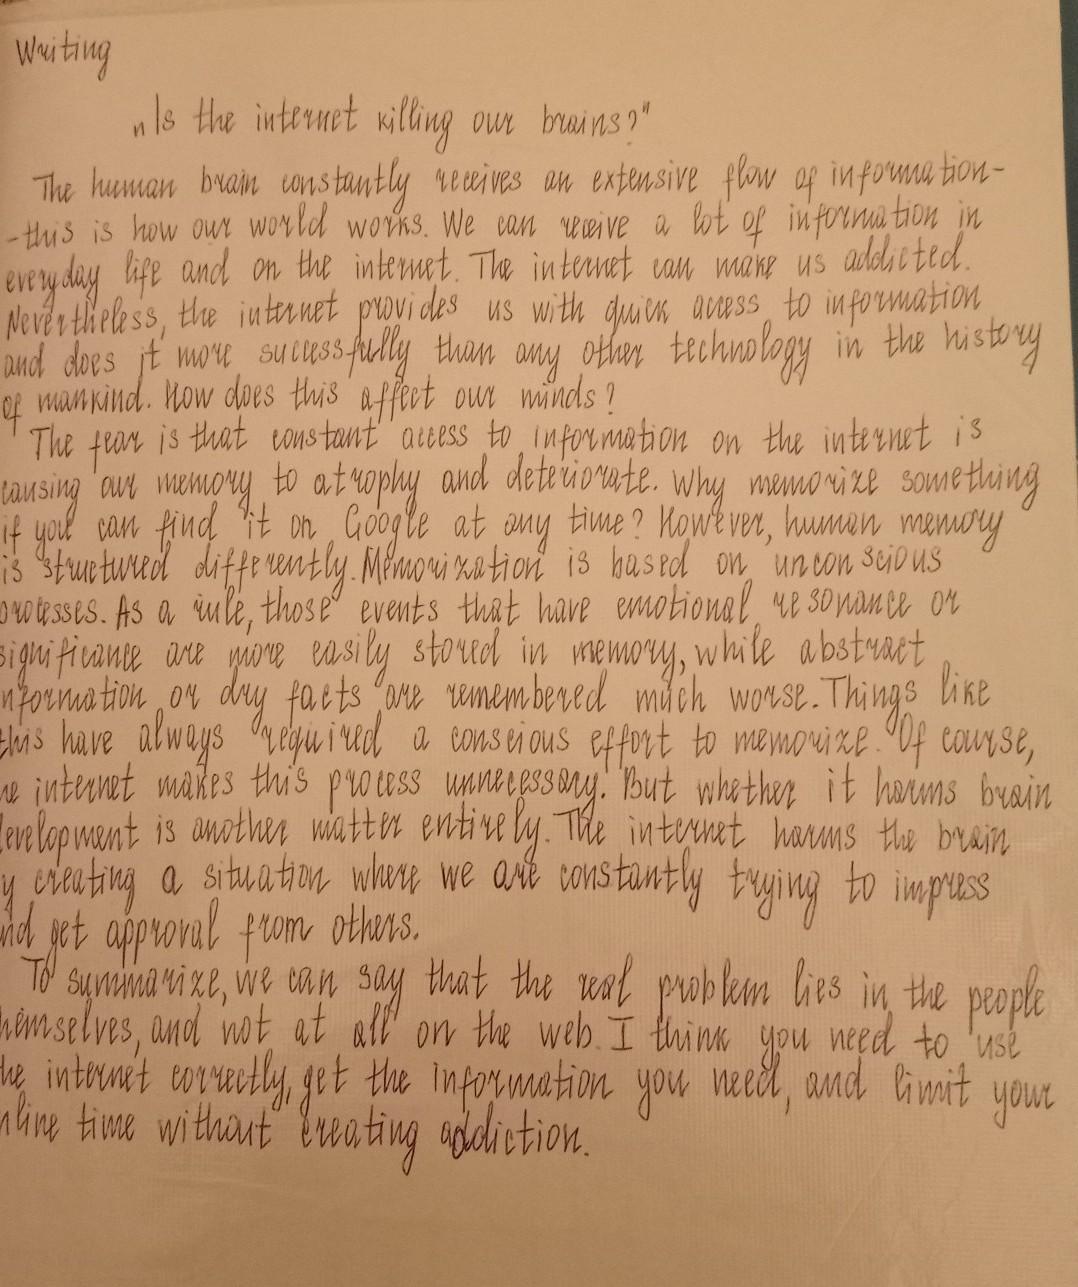 Writing
„Is the internet killing our brains?"
The human brain constantly receives an extensive flow of information-
-this is how our world works. We can receive a lot of information in
everyday life and on the internet. The internet can make us addicted.
Nevertheless, the internet provides us with quick access to information
and does it more successfully than any other technology in the history
of mankind. How does this affect our minds?
The fear is that constant access to information on the internet is
causing our memory to atrophy and deteriorate. Why memorize something
if you can find it on Google at any time? However, human memory
is structured differently. Memorization is based on unconscious
processes. As a rule, those events that have emotional resonance or
significance are more easily stored in memory, while abstract
nformation or dry facts are remembered much worse. Things like
this have always required a conscious effort to memorize. Of course,
he internet makes this process unnecessary. But whether it harms brain
development is another matter entirely. The internet harms the brain
y creating a situation where we are constantly trying to impress
nd get approval from others.
To summarize, we can say that the real problem lies in the people
hemselves, and not at all on the web. I think you need to use
he internet correctly, get the information you need, and limit your
nline time without creating addiction.